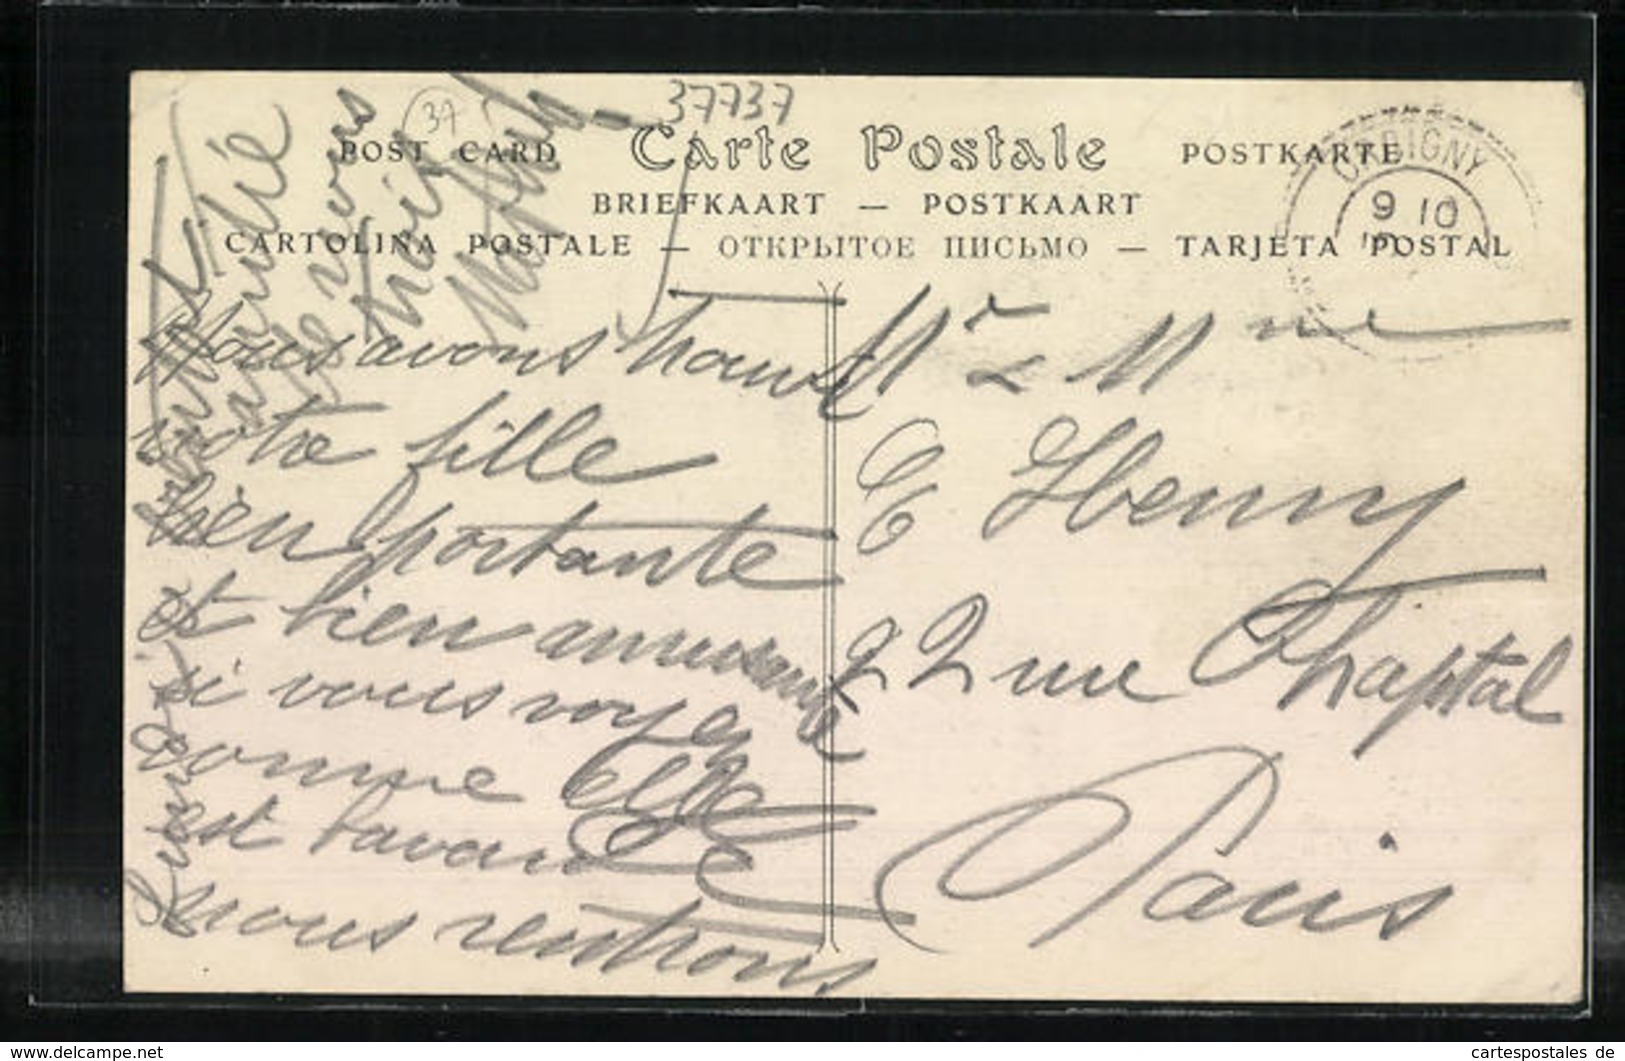 37737
37
POST CARD Carte Postale POSTKARTE
BRIEFKAART — POSTKAART
CARTOLINA POSTALE — ОТКРЫТОЕ ПИСЬМО — TARJETA POSTAL
ORBIGNY
9 10
Nous avons trouvé
votre fille
bien portante
et bien amusante
si vous voyez
comme elle
est bavarde
nous rentrons
Mr & Mme
E Henry
22 rue Chaptal
Paris
de vous
voir
www.delcampe.net
cartespostales de